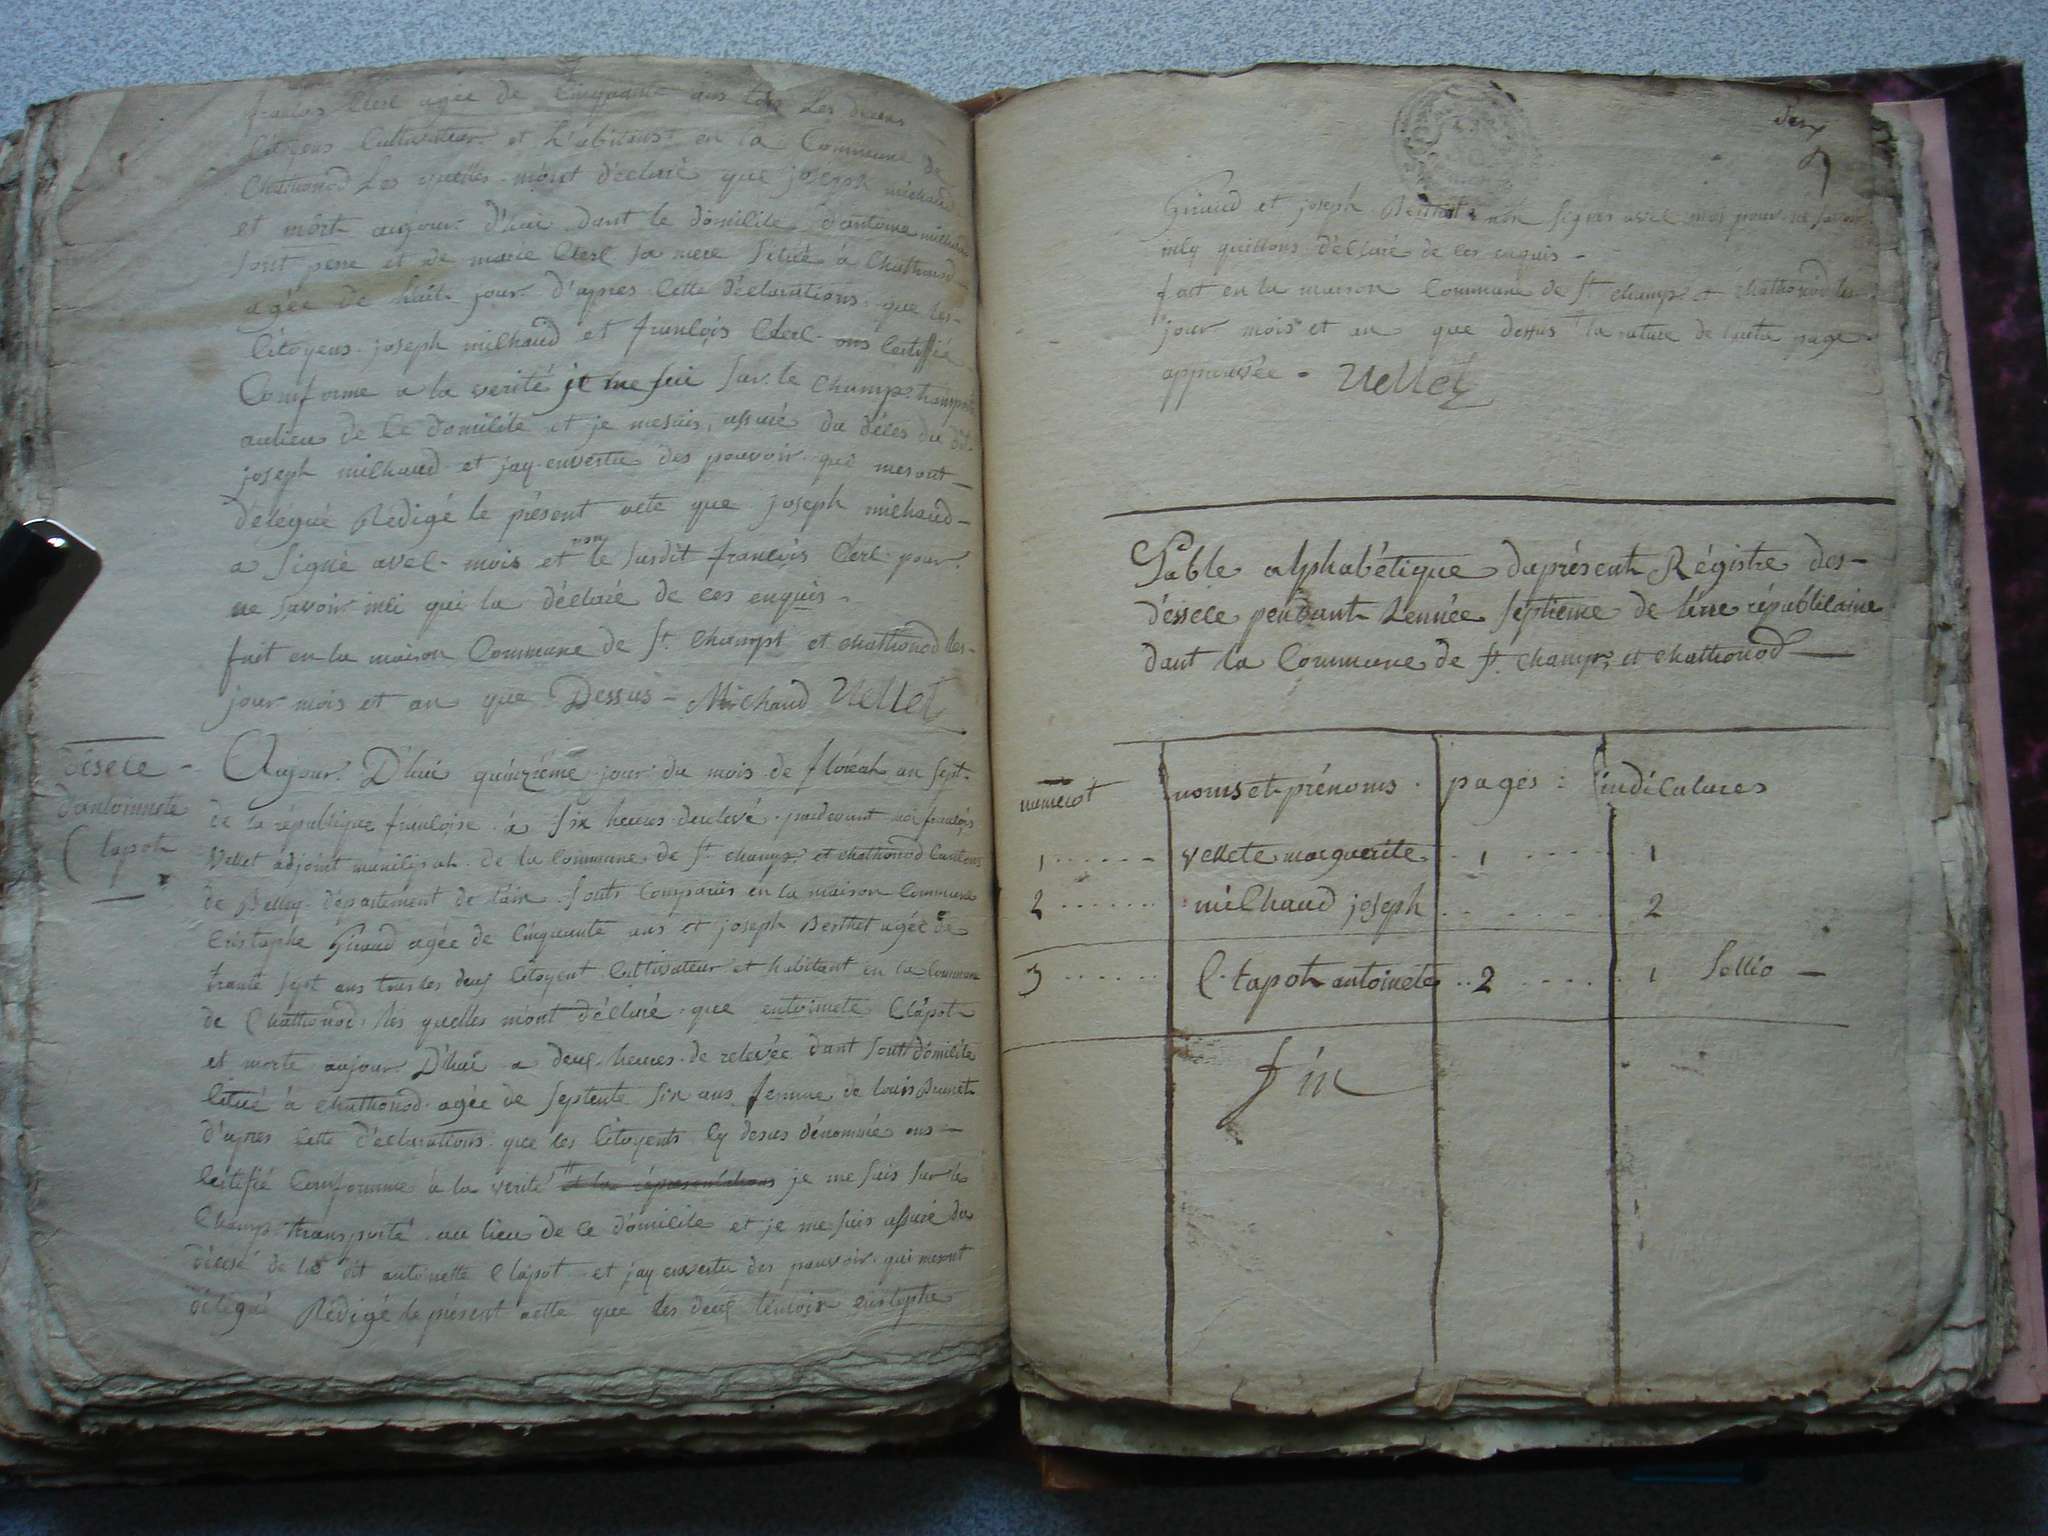 Clerc agée de Cinquante ans tous Les deux
Citoyens Cultivateur et habitent en la Commune de
Chathonod Les quelles m'ont déclaré que joseph michaud
et mort aujour d'hui dant le domicile d'antoine michaud
sont pere et de marie Clerc sa mere situé à Chathonod
agée de huit jour d'apres cette déclarations que les
Citoyens joseph michaud et françois Clerc ons certiffié
Comforme a la verité je me sui sur le champs transporté
aulieu de ce domicile et je mesuis assuré du déces du dit
joseph michaud et jay envertu des pouvoir qui mesont
délegué Rédigé le présent acte que joseph michaud
a signé avec mois et non le susdit françois Clerc pour
ne savoir qui la déclaré de ces enquis
fait en la maison Commune de St champt et chathonod les
jour mois et an que Dessus - Michaud Vellet
déscce
d'antoinnete
Clapot
Aujour D'hui quinziéme jour du mois de floréal an sept
de la république françoise à six heures deulevé pardevant moi françois
Vellet adjoint municipal de la Commune de St champt et chathonod Cantons
de Belley département de l'ain sonts Comparuis en la maison Commune
Cristophe Giraud agée de Cinquante ans et joseph Berthet agée de
trante sept ans tous les deuj Citoyent Cultivateur et habitant en la Commune
de Chathonod les quelles m'ont déclaré que entoinete Clapot
et morte aujour D'hui a deuj heures de relevée dant sont domicile
citué à Chathonod agée de septente six ans femme de louis Brunet
d'apres cette déclarations que les Citoyents cy desus dénommée ons
Certifié Comformme à la verité et la représentations je me suis sur le
Champ transporté au lieu de ce domicile et je me suis assuré du
décsé de la dit antoinette Clapot et jay envertu des pouvoir qui mesont
délégué Rédigé le présent actte que les deuj temoix cristophe
deux
Giraud et joseph Berthet non signés avec moi pour ne savoir
quittons déclaré de ces enquis
fait en la maison Commune de St champt et chathonod les
jour mois et an que dessus la rature de lautre page
appruvée - Vellet
Table alphabétique duprésent Régistre des
déssece pendant Lennée septieme de lere républicaine
dant la Commune de St champt et chathonod
numerot nomset prénoms pages indicatures
1 vellete marguerite 1 1
2 michaud joseph 2
3 C.tapot antoinete 2 1 follio
fin